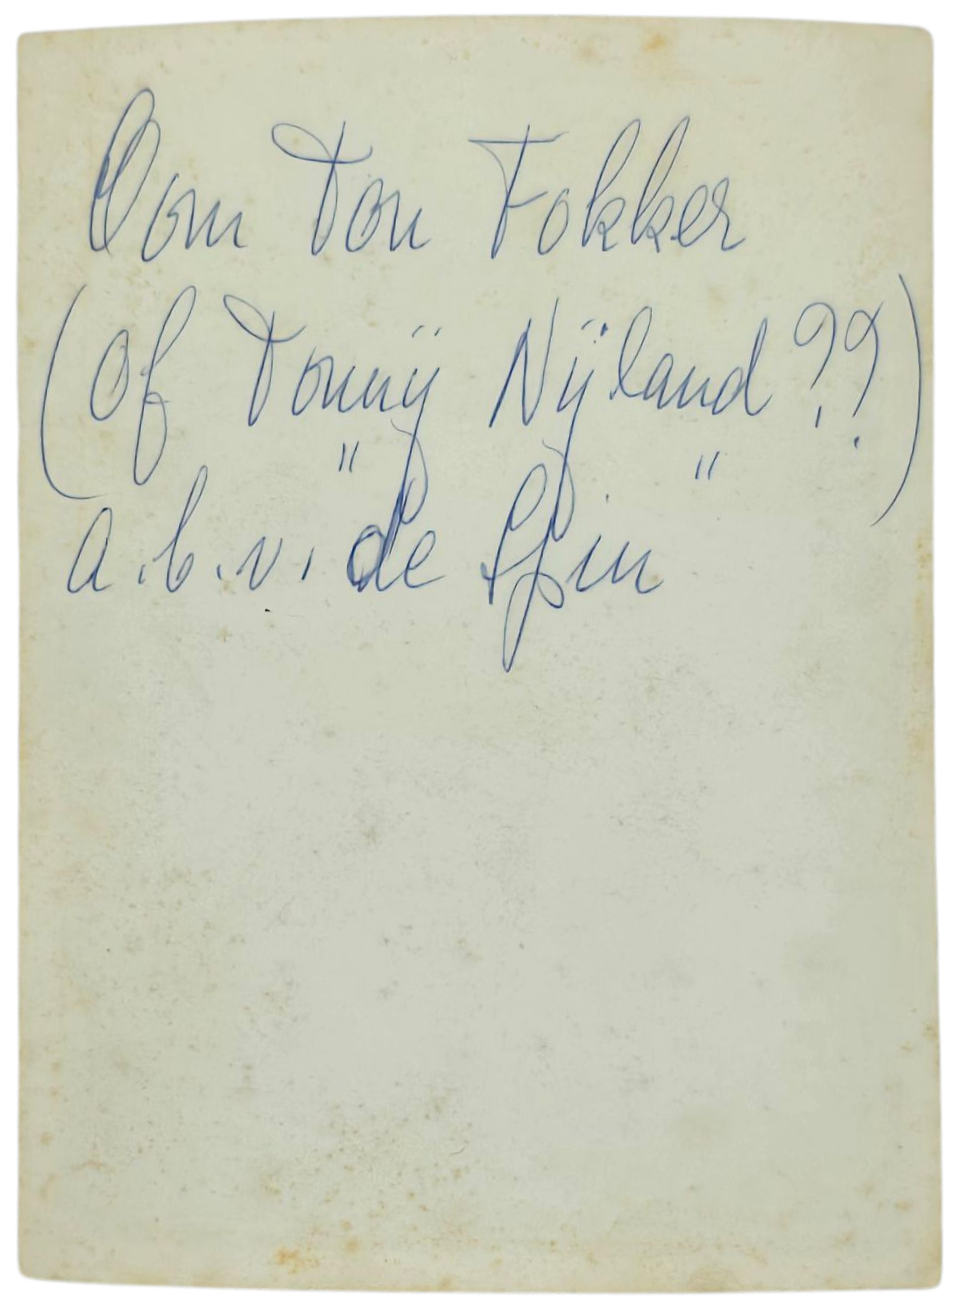 Oom Ton Fokker
(Of Tonny Nÿland ??)
a.b.v. "de Spin"